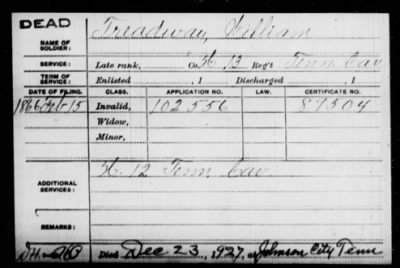 DEAD
NAME OF SOLDIER: Treadway, William
SERVICE: Late rank, Co. H, 13 Reg't Tenn Cav
TERM OF SERVICE: Enlisted , 1 Discharged , 1
DATE OF FILING. CLASS. APPLICATION NO. LAW. CERTIFICATE NO.
1866 Feb 15 Invalid, 102556 87504
Widow,
Minor,
ADDITIONAL SERVICES: H. 12 Tenn. Cav.
REMARKS:
Died Dec 23, 1927, at Johnson City Tenn